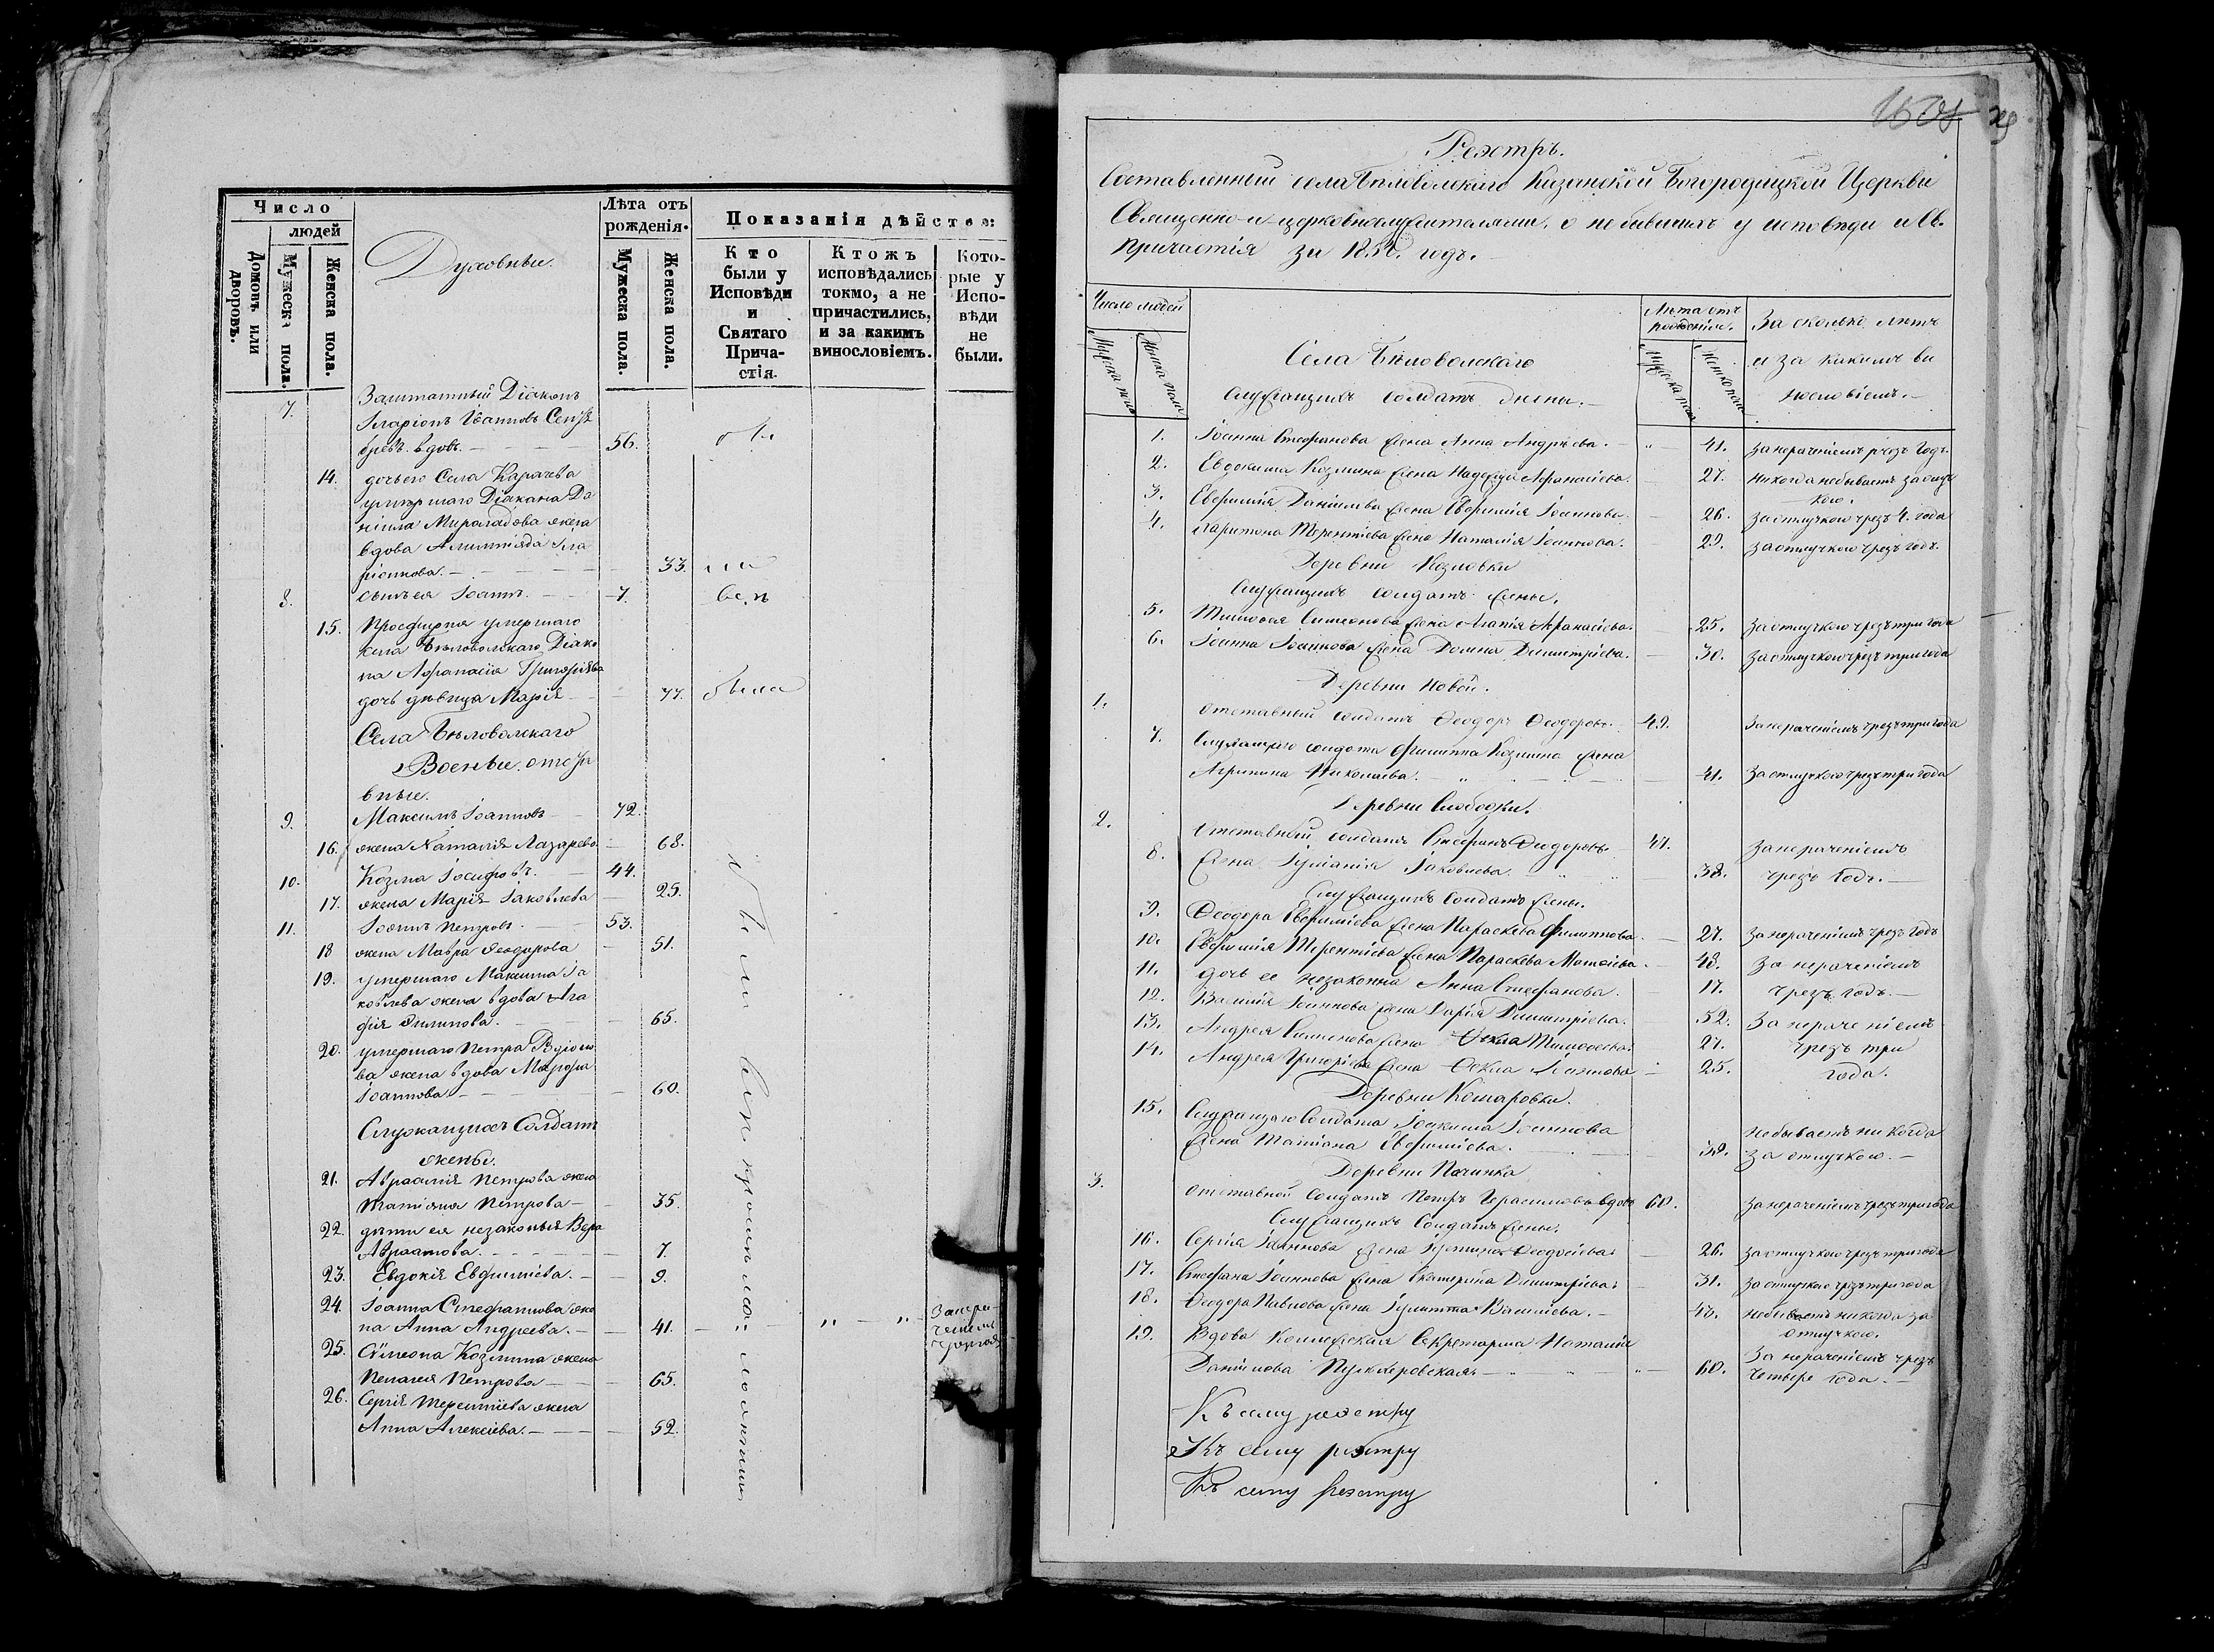 Число
людей
Домовъ или дворовъ.
Мужеска пола.
Женска пола.
Духовные.
Лѣта отъ рожденія.
Мужеска пола.
Женска пола.
Показанія дѣйства:
Кто были у Исповѣди и Святаго Прича-стія.
Ктожъ исповѣдались токмо, а не причастились, и за какимъ винословіемъ.
Кото-рые у Испо-вѣди не были.
7. Заштатный Діаконъ
Иларіонъ Ивановъ
вдовъ. 56.
14. дочь его Села Карачева
умершаго Діакона Да
ніила жена
вдова Ила
ріонова. 33.
8. сынъ ея Іоаннъ. 7.
15. Просфирня умершаго
села Бѣловолжскаго Діако
на Афанасія Григорьева
дочь дѣвица Марія 77. была
Села Бѣловолжскаго
Военные отста
вные.
9. Максимъ Іоанновъ 72.
16. жена Наталія Лазарева 68.
10. Козма Іосифовъ. 44.
17. жена Марія Іаковлева 25.
11. Іоаннъ Петровъ. 53.
18 жена Мавра Феодорова 51.
19. умершаго Максима Іа
ковлева жена вдова Ага
фія Филипова. 65.
20. умершаго Петра
ва жена вдова Марфа
Іоаннова. 60.
Служащихъ Солдатъ
жены.
21. Авраамія Петрова жена
Татіана Петрова 35.
22. дѣти ея незаконныя Вера
Авраамова. 7.
23. Евдокія Евфиміева. 9.
24. Іоанна Стефанова же
на Анна Андреева. 41. За нера-
ченіемъ
чрезъ годъ
25. Симеона Козмина жена
Пелагея Петрова 65.
26. Сергія Терентіева жена
Анна Алексіева. 52.
Реэстръ.
Составленный села Бѣловолжскаго Казанской Богородицкой Церкви
Священно-и-церковнослужителями, о небывшихъ у исповѣди и Св.
Причастія за 1850. годъ.
Число людей
Мужеска пола
Женска пола
Села Бѣловолжскаго
служащихъ солдатъ жены.
Лѣта отъ рожденія.
Мужеска пола
Женска пола
За сколько лѣтъ
и за какимъ ви
нословіемъ.
1. Іоанна Стефанова жена Анна Андрѣева. 41. За нераченіемъ чрезъ годъ.
2. Евдокима Козмина жена Надежда Афанасіева. 27. Никогда небываетъ за отлуч
кою.
3. Евфимія Даніилова жена Евфимія Іоаннова. 26. За отлучкою чрезъ 4. года
4. Харитона Терентіева жена Наталія Іоаннова. 29. За отлучкою чрезъ годъ.
Деревни Козловки
Служащихъ солдатъ жены.
5. Тимофея Симеонова жена Агапія Афанасіева. 25. За отлучкою чрезъ три года
6. Іоанна Іоаннова жена Домна Димитріева. 30. За отлучкою чрезъ три года
Деревни Новой.
1. Отставный солдатъ Феодоръ Феодоровъ. 49. За нераченіемъ чрезъ три года
7. Служащаго солдата Филиппа Козмина жена
Агрипина Николаева. 41. За отлучкою чрезъ три года
Деревни Слободки.
2. Отставный солдатъ Стефанъ Феодоровъ 47. За нераченіемъ
8. Жена Іуліанія Іаковлева. 38. чрезъ годъ.
Служащихъ Солдатъ жены.
9. Феодора Евфиміева жена Параскева Филиппова. 27. За нераченіемъ чрезъ годъ
10. Евфимія Терентіева жена Параскева Матѳіева. 48. За нераченіемъ
11. дочь ее незаконна Анна Стефанова. 17. чрезъ годъ.
12. Василія Іоаннова жена Дарія Димитріева. 52. За нераченіемъ
13. Андрея Симеонова жена Ѳекла Тимоѳеева. 27. чрезъ три
14. Андрея Григоріева жена Ѳекла Іоаннова 25. года.
Деревни Комаровки.
15. Служащаго Солдата Іоакима Іоаннова
жена Татіана Евфиміева. 38. Небываетъ никогда
за отлучкою.
Деревни Починка
3. Отставной Солдатъ Петръ Герасимовъ вдовъ 60. За нераченіемъ чрезъ три года
Служащихъ Солдатъ жены.
16. Сергія Іоаннова жена Іустина Феодосіева. 26. За отлучкою чрезъ три года
17. Стефана Іоаннова жена Екатерина Димитріева. 31. За отлучкою чрезъ три года
18. Феодора Павлова жена Іулитта Василіева. 40. Небываетъ никогда за
отлучкою.
19. Вдова Коллежская Секретарша Наталія
Даніилова Пульхеровская 60. За нераченіемъ чрезъ
четыре года.
Къ сему реэстру
Къ сему реэстру
Къ сему реэстру